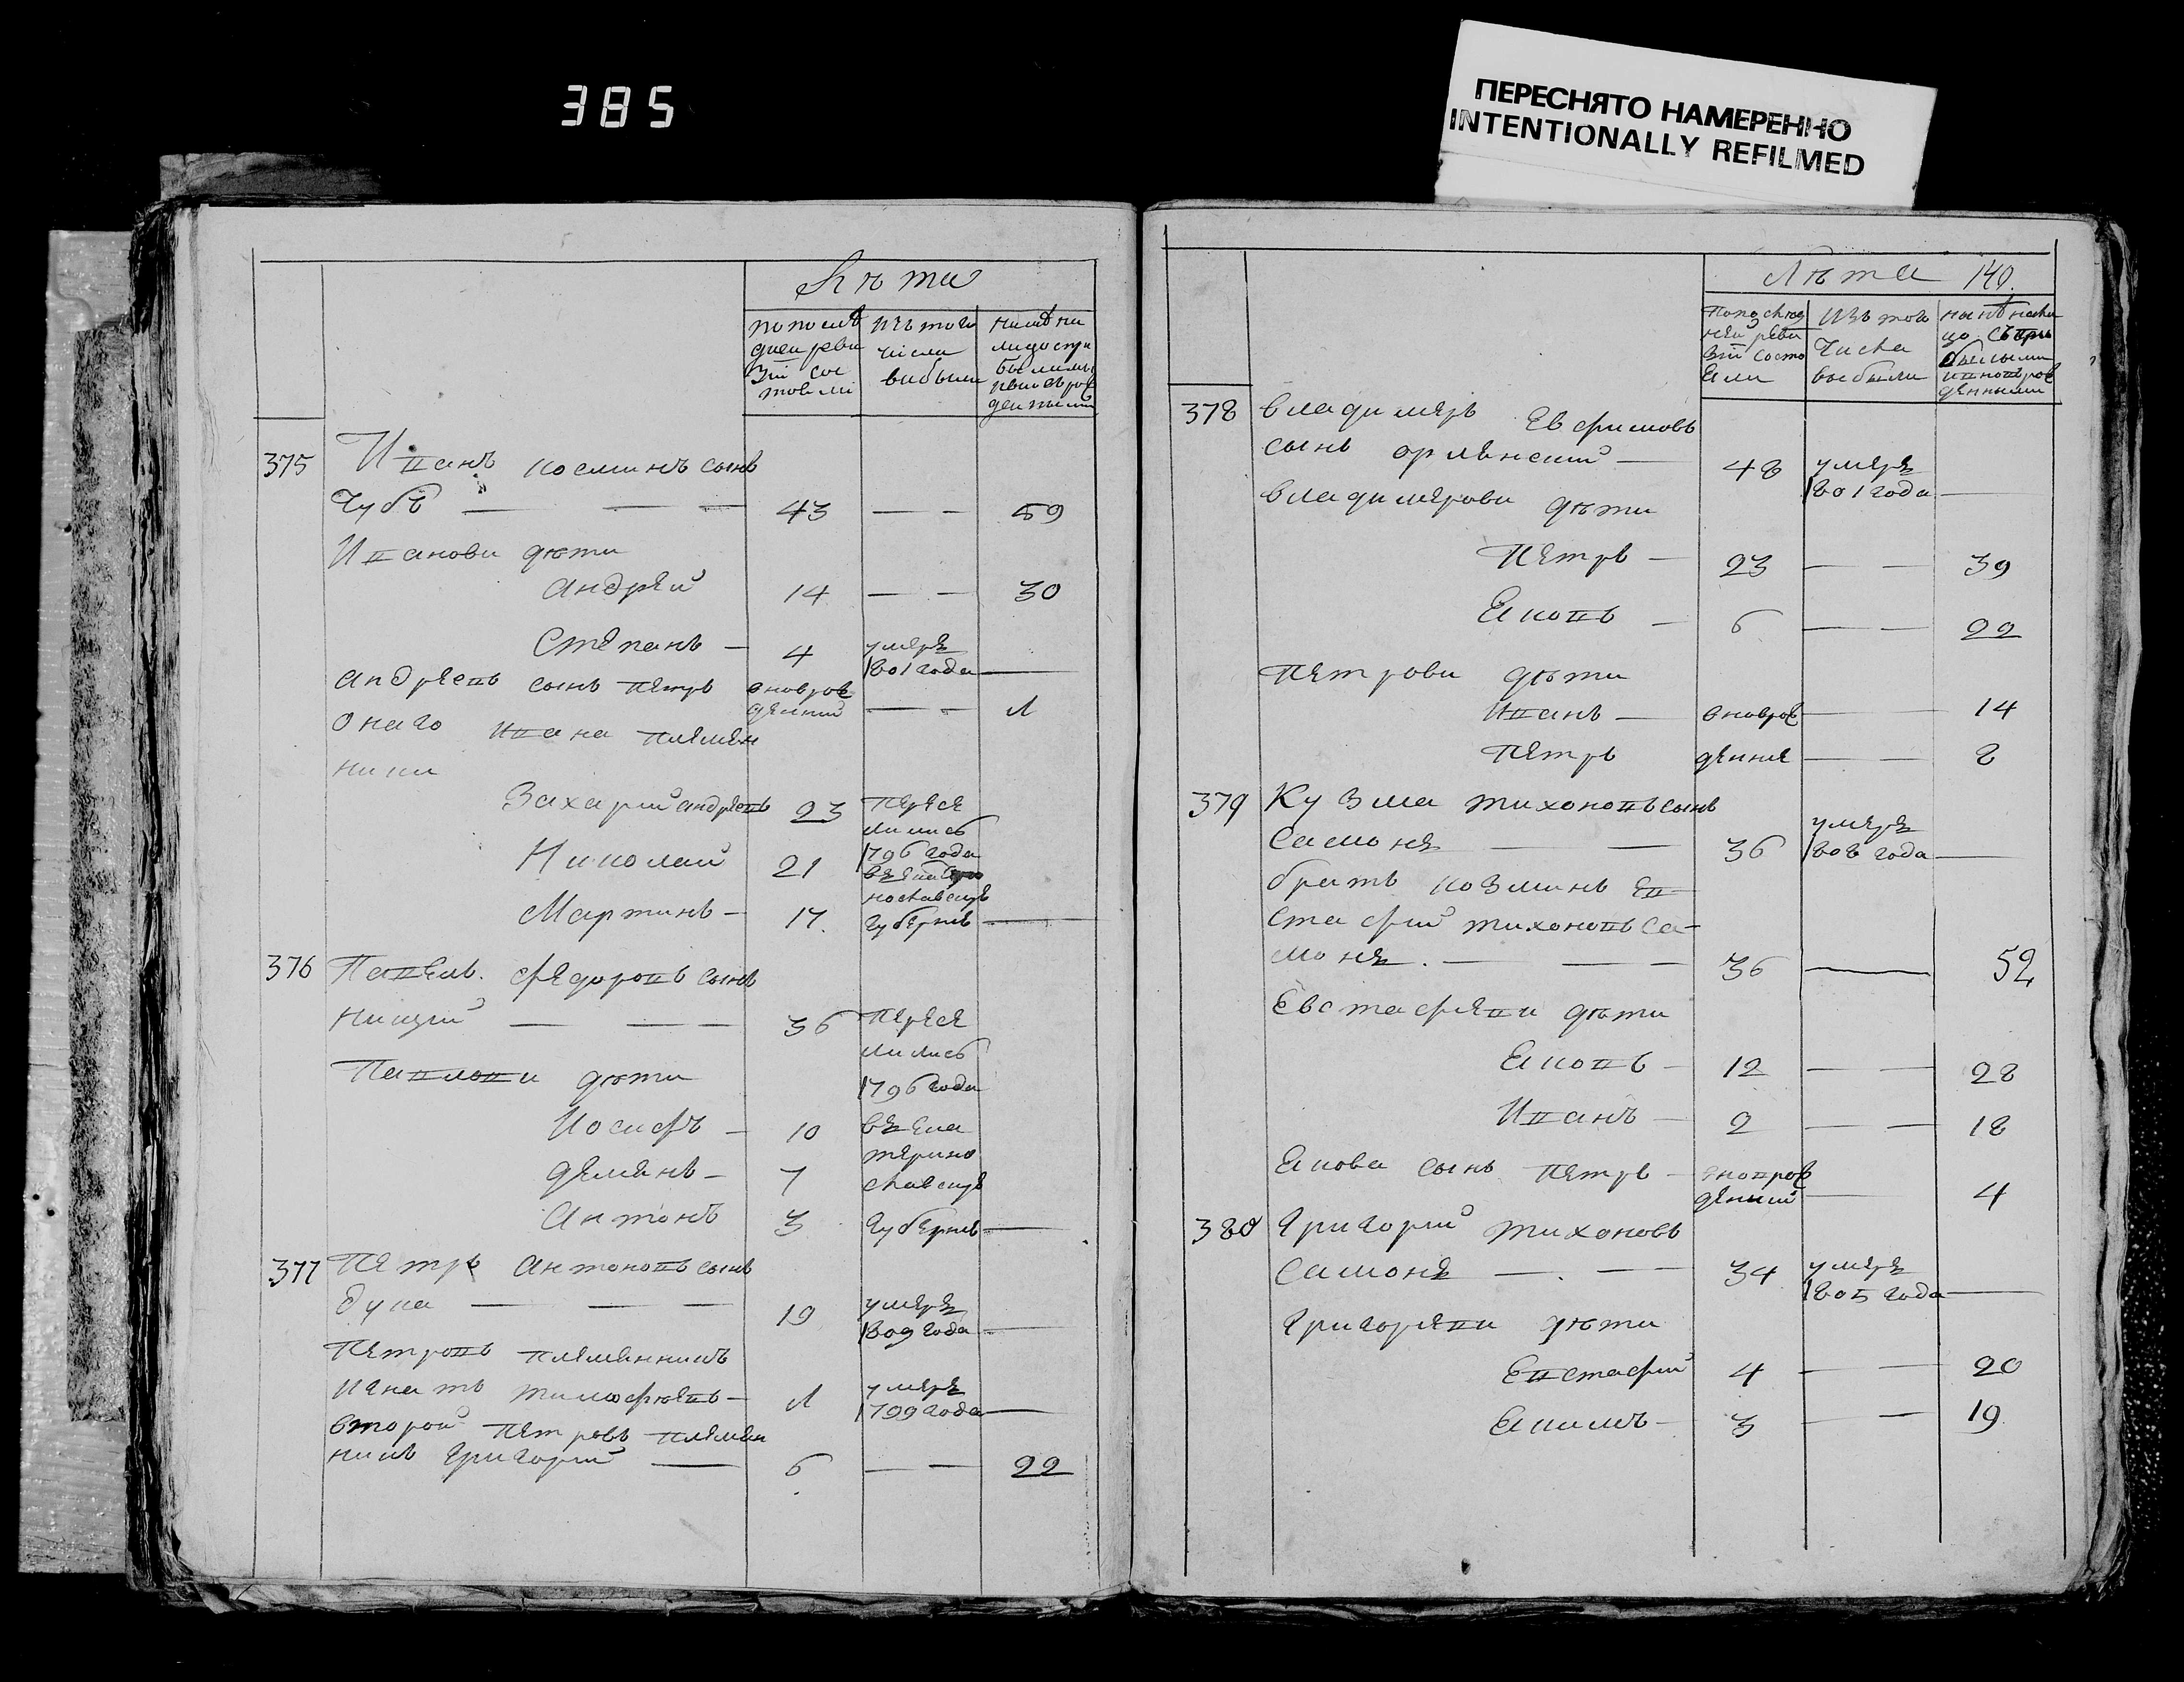 385
ПЕРЕСНЯТО НАМЕРЕННО
INTENTIONALLY REFILMED
Лѣта
по послѣ
дней реви
зіи сос
тояли
изъ того
числа
выбыли
нынѣ на
лицо спри
былими
иновъ рож
денными
375 Иванъ косминъ сынъ
Чубъ — — — 43 — — 59
Ивановы дѣти
андрей 14 — — 30
Степанъ — 4 умеръ
1801 года —
андреевъ сынъ петръ вновь рож
денный — — 1
Онаго ивана племян
ники
Захарий андреевъ 23 пересе
лились
Николай 21 1796 года
въ екатери
нославскую
Мартинъ — 17. губернію —
376 Павелъ федоровъ сынъ
нищий — — — 36 пересе
лились
Павловы дѣти 1796 года
Иосифъ — 10 въ ека
терино
демянъ — 7 славскую
Антонъ 3 губернію —
377 Петръ антоновъ сынъ
дука — — — 19 умеръ
1809 года —
Петровъ племянникъ
игнатъ тимофеевъ — 1 умеръ
1799 года —
второй петровъ племян
никъ григорий — 6 — — 22
Лѣта 140.
по послед
ней реви
зіи состо
яли
изъ того
числа
выбыли
нынѣ нали
цо съ при
былыми
и новорож
денными
378 владимеръ Евфимовъ
сынъ орленский — 48 умеръ
1801 года —
владимеровы дѣти
Петръ — 23 — — 39
Яковъ — 6 — — 22
Петровы дѣти
Иванъ — вновь рож — 14
Петръ денне — — 8
379 Кузма тихоновъ сынъ
Самоня — — 36 умеръ
1808 года —
братъ козминъ Ев
стафий тихоновъ са-
моня. — — 36 — 52
Евстафеви дѣти
Яковъ — 12 — — 28
Иванъ — 2 — — 18
Якова сынъ петръ — вновь рож
денный — 4
380 Григорий тихоновъ
Самоня — . — 34 умеръ
1805 года —
Григореви дѣти
Евстафий 4 — — 20
Якимъ — 3 — — 19